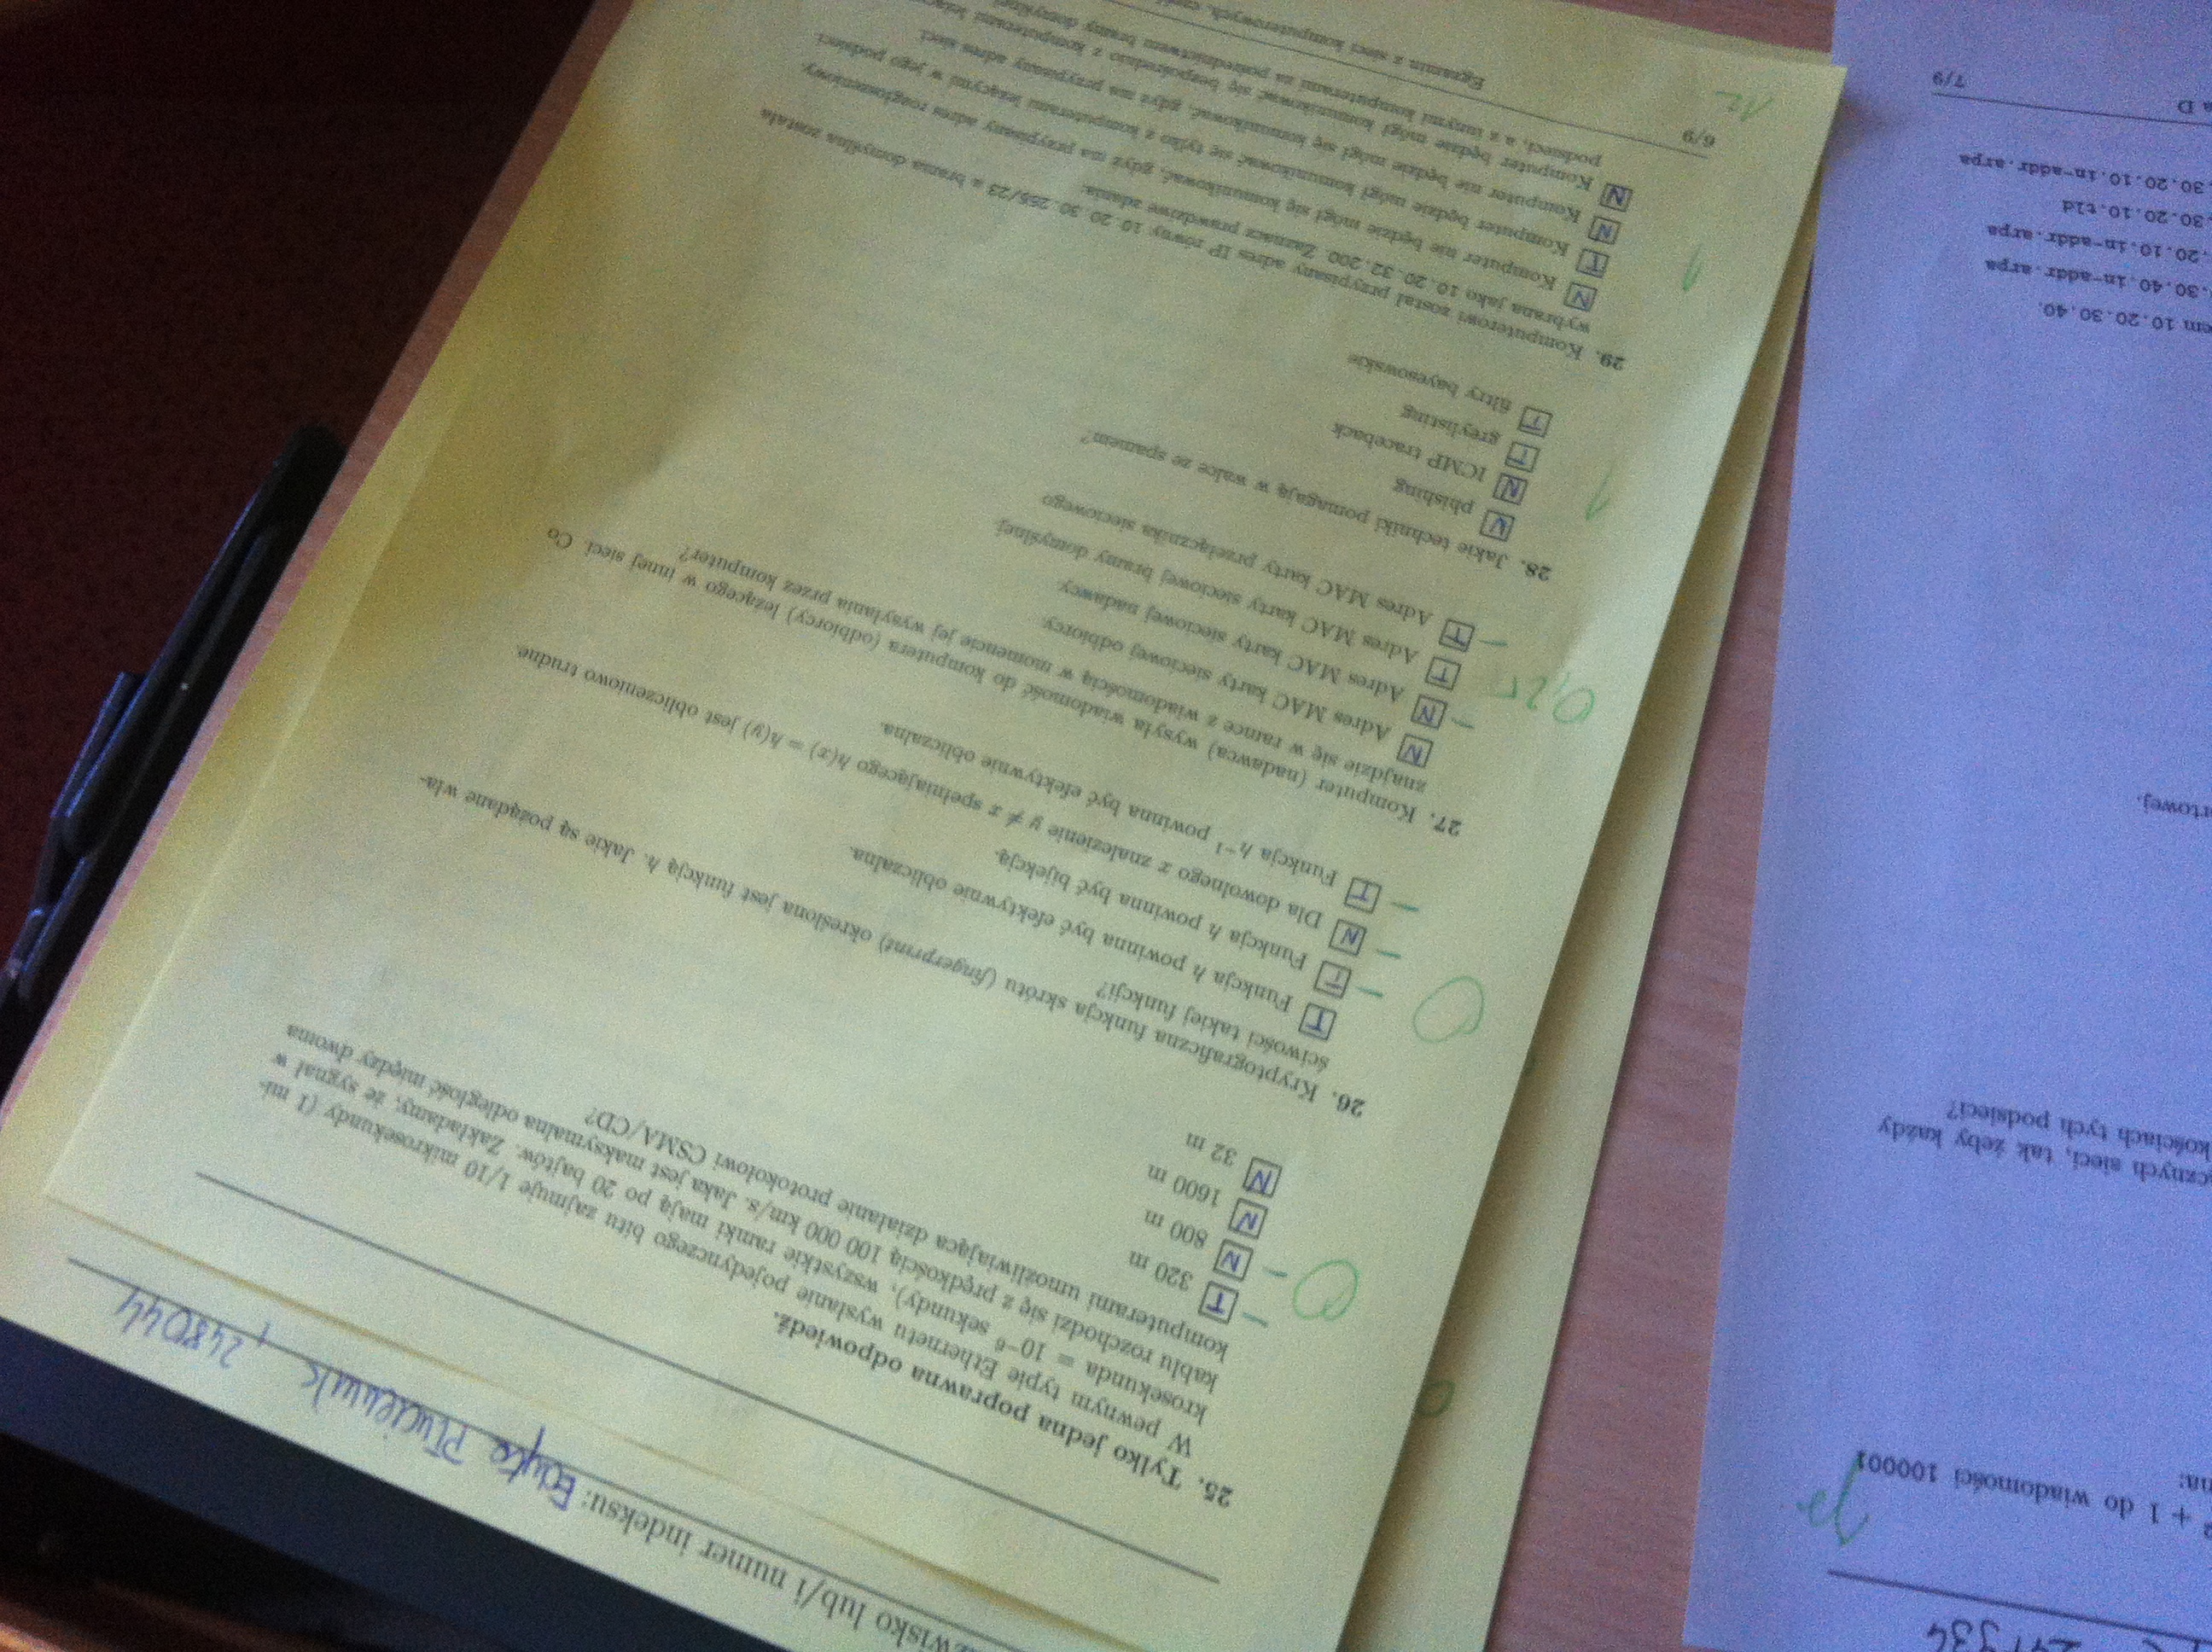 241934
² + 1 do wiadomości 100001
na:
ącznych sieci, tak żeby każdy
kościach tych podsieci?
rtowej.
em 10.20.30.40.
.30.40.in-addr.arpa
.20.10.in-addr.arpa
.30.20.10.tld
.30.20.10.in-addr.arpa
a D
7/9
zwisko lub/i numer indeksu: Edyta Płuciennik, 248044
25. Tylko jedna poprawna odpowiedź.
W pewnym typie Ethernetu wysłanie pojedynczego bitu zajmuje 1/10 mikrosekundy (1 mi-
krosekunda = 10⁻⁶ sekundy), wszystkie ramki mają po 20 bajtów. Zakładamy, że sygnał w
kablu rozchodzi się z prędkością 100 000 km/s. Jaka jest maksymalna odległość między dwoma
komputerami umożliwiająca działanie protokołowi CSMA/CD?
T 320 m
0
N 800 m
N 1600 m
N 32 m
26. Kryptograficzna funkcja skrótu (fingerprint) określona jest funkcją h. Jakie są pożądane wła-
ściwości takiej funkcji?
T Funkcja h powinna być efektywnie obliczalna.
0
T Funkcja h powinna być bijekcją.
N Dla dowolnego x znalezienie y ≠ x spełniającego h(x) = h(y) jest obliczeniowo trudne.
T Funkcja h⁻¹ powinna być efektywnie obliczalna.
27. Komputer (nadawca) wysyła wiadomość do komputera (odbiorcy) leżącego w innej sieci. Co
znajdzie się w ramce z wiadomością w momencie jej wysyłania przez komputer?
N Adres MAC karty sieciowej odbiorcy.
0,25
N Adres MAC karty sieciowej nadawcy.
T Adres MAC karty sieciowej bramy domyślnej.
T Adres MAC karty przełącznika sieciowego
28. Jakie techniki pomagają w walce ze spamem?
N phishing
1
N ICMP traceback
T greylisting
T filtry bayesowskie
29. Komputerowi został przypisany adres IP równy 10.20.30.255/23 a brama domyślna została
wybrana jako 10.20.32.200. Zaznacz prawdziwe zdania:
N Komputer nie będzie mógł się komunikować, gdyż ma przypisany adres rozgłoszeniowy.
1
T Komputer będzie mógł komunikować się tylko z komputerami leżącymi w jego podsieci.
N Komputer nie będzie mógł się komunikować, gdyż ma przypisany adres sieci.
N Komputer będzie mógł komunikować się bezpośrednio z komputerami
podsieci, a z innymi komputerami za pośrednictwem bramy domyślnej.
6/9
12
Egzamin z sieci komputerowych,